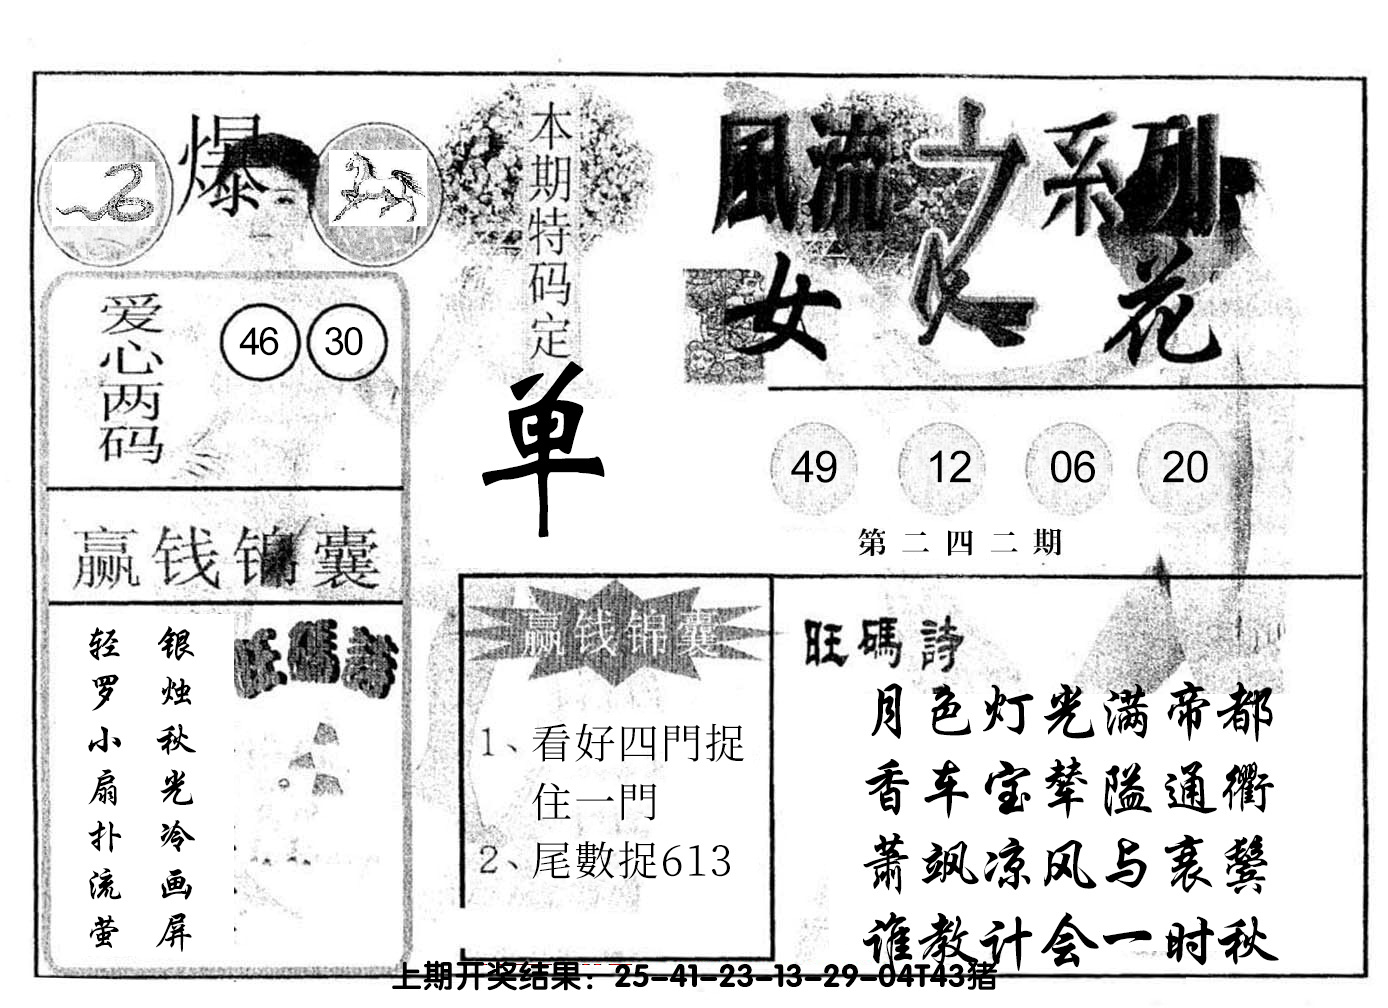 爆
本期特码定
单
風流之系列
女人花
爱心两码
46 30
49 12 06 20
第二四二期
赢钱锦囊
银烛秋光冷画屏
轻罗小扇扑流萤
旺碼詩
赢钱锦囊
1、看好四門捉
住一門
2、尾數捉613
旺碼詩
月色灯光满帝都
香车宝辇隘通衢
萧飒凉风与衰鬓
谁教计会一时秋
上期开奖结果：25-41-23-13-29-04T43猪